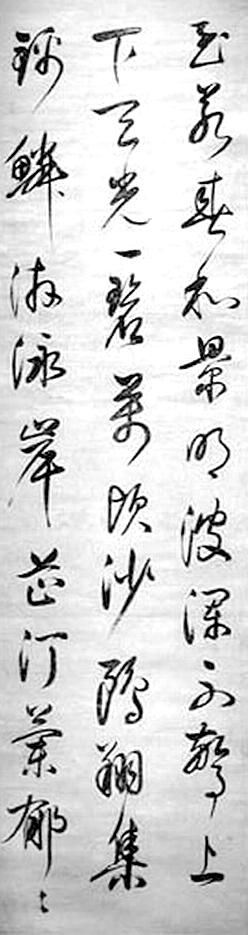 至若春和景明波澜不驚上
下天光一碧萬頃沙鷗翔集
錦鱗游泳岸芷汀蘭郁〻